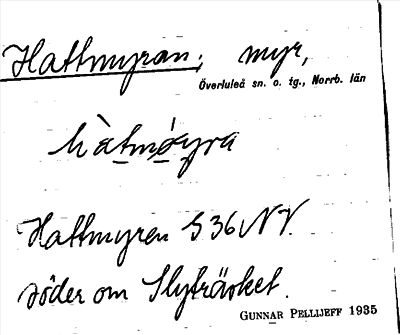 Hattmyran; myr,
Överluleå sn. o. tg., Norrb. län
hàtmøyra
Hattmyren S36NV.
söder om Slyträsket.
GUNNAR PELLIJEFF 1935